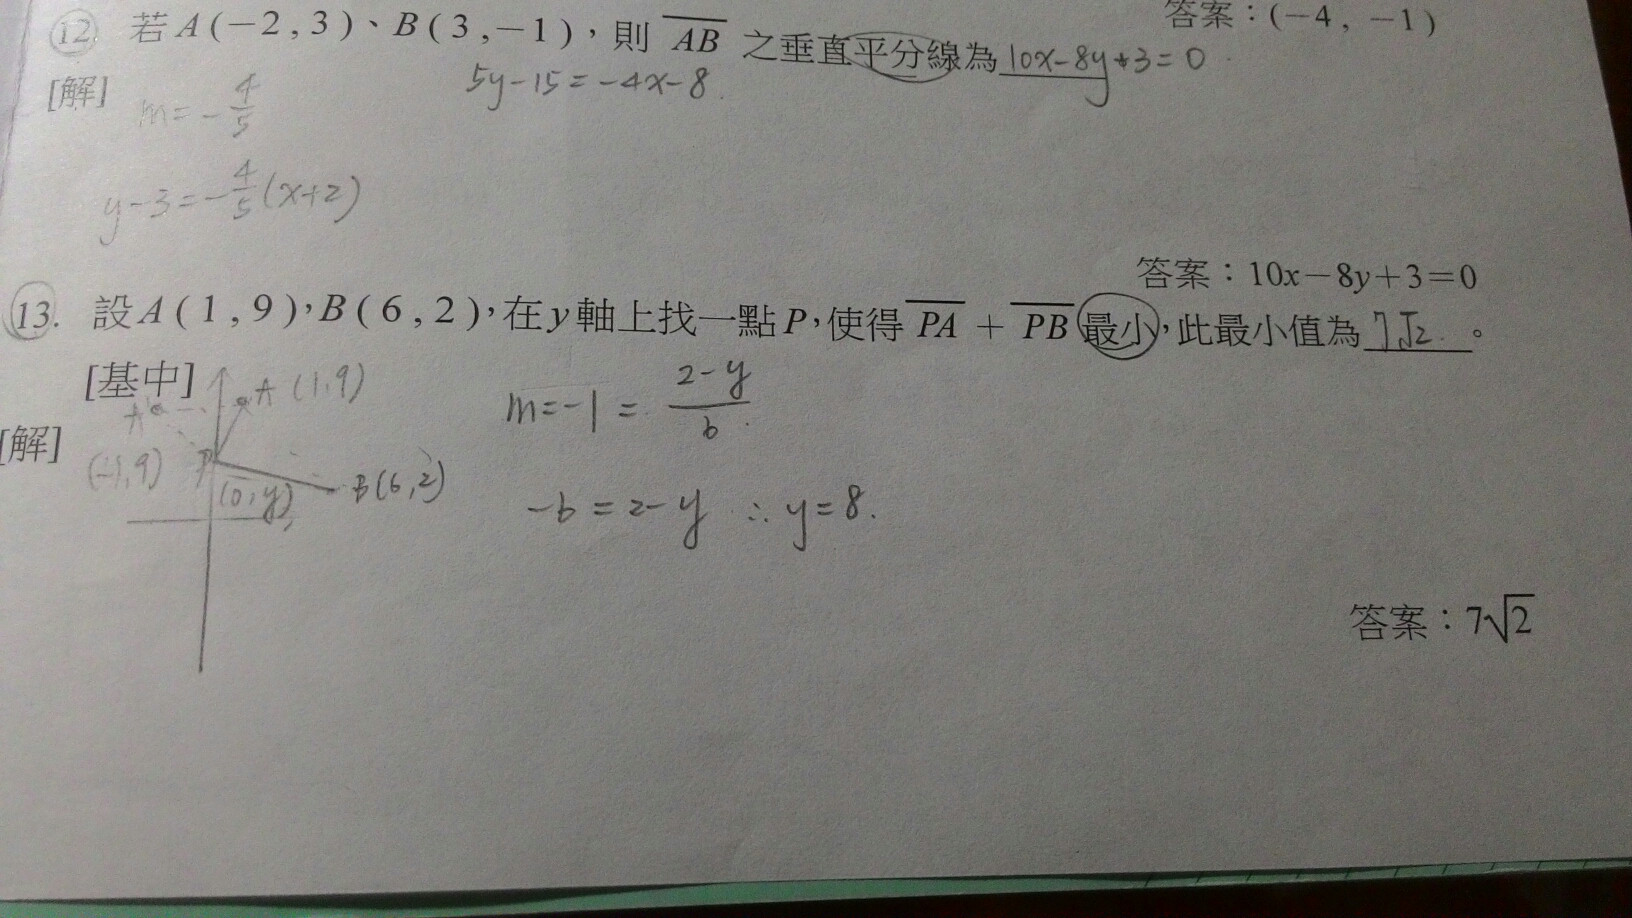 答案：(−4, −1)
12. 若A(−2,3)、B(3,−1)，則AB之垂直平分線為10x−8y+3=0
[解] m=−4/5
5y−15=−4x−8
y−3=−4/5(x+2)
答案：10x−8y+3=0
13. 設A(1,9)，B(6,2)，在y軸上找一點P，使得PA+PB最小，此最小值為7√2。
[基中]
[解]
A' A (1,9)
(−1,9) P
(0,y) B(6,2)
m=−1=2−y/6
−6=2−y ∴y=8.
答案：7√2